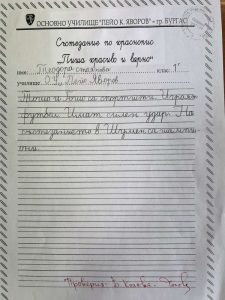 ОСНОВНО УЧИЛИЩЕ "ПЕЙО К. ЯВОРОВ" - гр. БУРГАС
Състезание по краснопис
„Пиша красиво и вярно“
име: Теодора Стоянова клас: 1г
училище: ОУ „Пейо Яворов
Тошо и Гошо са спортисти. Играят
футбол. Имат силен удар. На
състезанието в Шумен са шампи-
они.
Проверил: